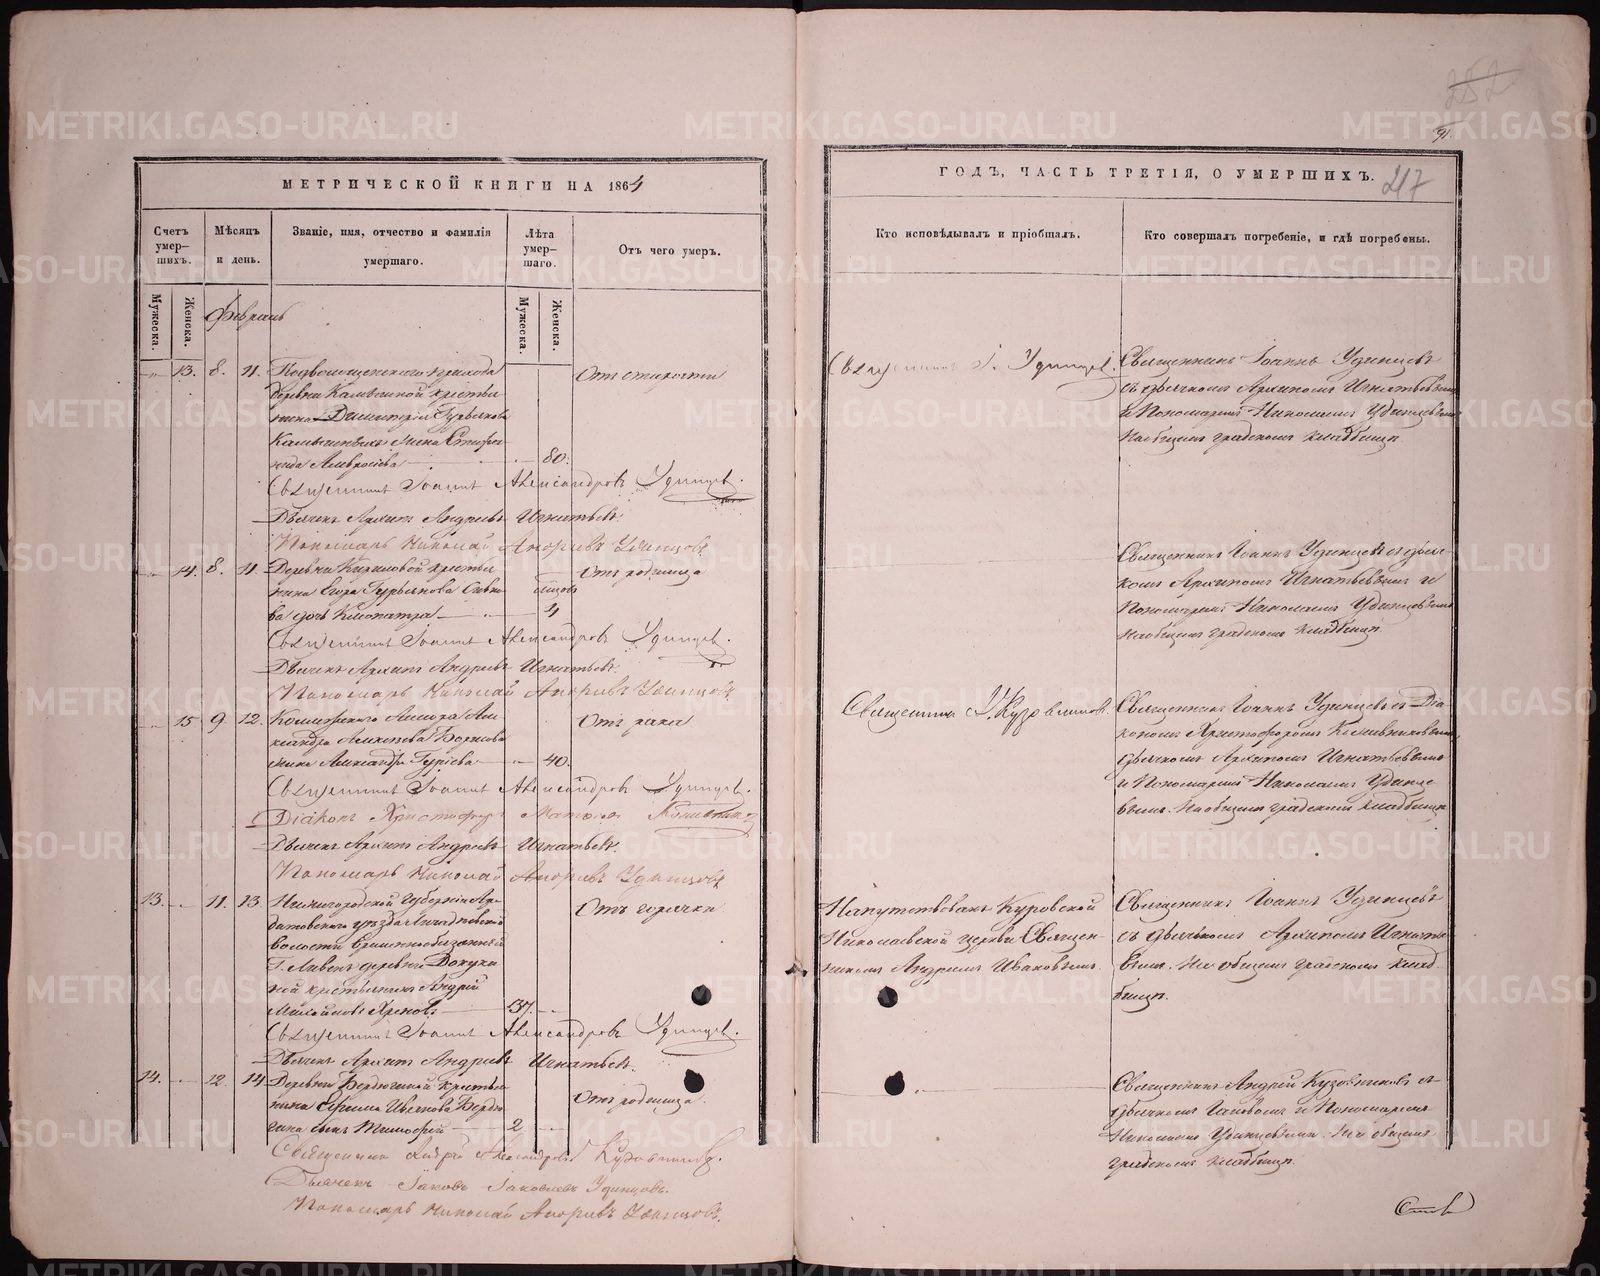 МЕТРИЧЕСКОЙ КНИГИ НА 1864
Счетъ умер-шихъ.
Мѣсяцъ и день.
Званіе, имя, отчество и фамилія умершаго.
Лѣта умер-шаго.
Отъ чего умеръ.
Мужеска.
Женска.
Мужеска.
Женска.
Февраль
13. 8. 11.
деревни
80.
Отъ старости
Священникъ Іоаннъ Александровъ Удинцевъ.
Дьячекъ Архипъ Андреевъ Игнатьевъ.
Пономарь Николай Удинцовъ
14. 8. 11. Деревни Кириловой крестья-
нина Егора Гурьянова
дочь Клеопатра
4
Отъ родимца
Священникъ Іоаннъ Александровъ Удинцевъ.
Дьячекъ Архипъ Андреевъ Игнатьевъ.
Пономарь Николай Удинцовъ
15 9. 12.
жена Александра
40.
Отъ рака
Священникъ Іоаннъ Александровъ Удинцевъ.
Діаконъ Христофоръ
Дьячекъ Архипъ Андреевъ Игнатьевъ.
Пономарь Николай Удинцовъ
13. 11. 13. Нижегородской Губерніи Ар-
датовскаго уѣзда
волости временнообязанный
деревни
крестьянинъ Андрей
37.
Отъ горячки
Священникъ Іоаннъ Александровъ Удинцевъ.
Дьячекъ Архипъ Андреевъ Игнатьевъ.
14. 12. 14. Деревни Бердюгиной крестья-
нина Ефима Иванова Бердю-
гина сынъ Тимофей
2
Отъ родимца.
Священникъ Андрей Александровъ Кузовниковъ.
Дьячекъ Іаковъ Іаковлевъ Удинцовъ.
Пономарь Николай Удинцовъ.
252
91.
ГОДЪ, ЧАСТЬ ТРЕТІЯ, О УМЕРШИХЪ.
217
Кто исповѣдывалъ и пріобщалъ.
Кто совершалъ погребеніе, и гдѣ погребены.
Священникъ І. Удинцевъ.
Священникъ Іоаннъ Удинцевъ
съ дьячкомъ Архипомъ Игнатьевымъ
и Пономаремъ Николаемъ Удинцевымъ
На общемъ градскомъ кладбищѣ
Священникъ Іоаннъ Удинцевъ съ дьяч-
комъ Архипомъ Игнатьевымъ и
Пономаремъ Николаемъ Удинцевымъ
На общемъ градскомъ кладбищѣ
Священникъ А. Кузовниковъ.
Священникъ Іоаннъ Удинцевъ съ Діа-
кономъ Христофоромъ
дьячкомъ Архипомъ Игнатьевымъ
и Пономаремъ Николаемъ Удинце-
вымъ. На общемъ градскомъ кладбищѣ
Напутствованъ Куровской
Николаевской церкви Священ-
никомъ Андреемъ Ивановымъ.
Священникъ Іоаннъ Удинцевъ
съ дьячкомъ Архипомъ Игнатье-
вымъ. На общемъ градскомъ клад-
бищѣ.
Священникъ Андрей Кузовниковъ съ
дьячкомъ Іаковомъ и Пономаремъ
Николаемъ Удинцевыми. На общемъ
градскомъ кладбищѣ.
METRIKI.GASO-URAL.RU